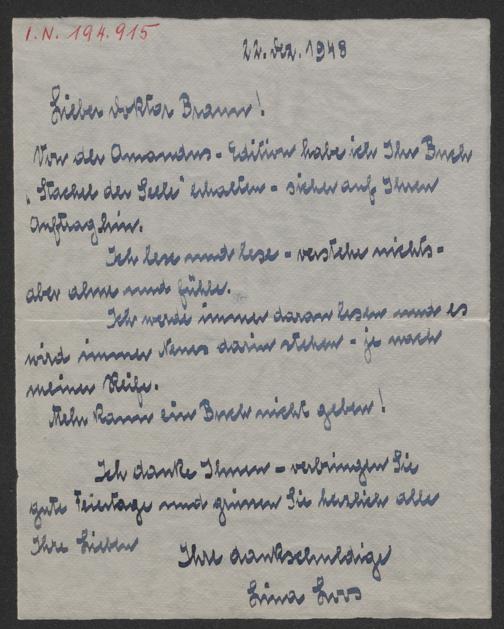 I.N. 194.915
22. Dez. 1948
Lieber Doktor Braun!
Von der Amandus-Edition habe ich Ihr Buch
"Stachel der Seele" erhalten - sicher auf Ihren
Auftrag hin.
Ich lese und lese - verstehe nichts -
aber ahne und fühle.
Ich werde immer daran lesen und es
wird immer Neues darin stehen - je nach
meiner Reife.
Mehr kann ein Buch nicht geben!
Ich danke Ihnen - verbringen Sie
gute Feiertage und grüssen Sie herzlich alle
Ihre Lieben
Ihre dankschuldige
Lina Loos